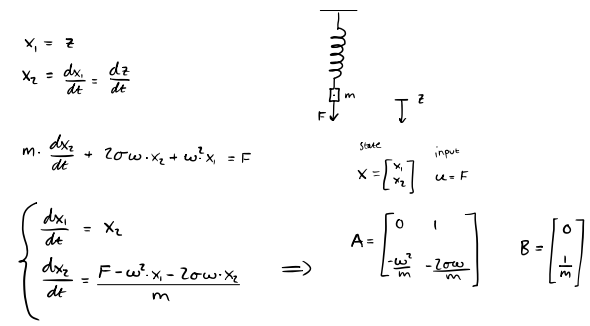 x₁ = z
x₂ = dx₁/dt = dz/dt
m
F
z
m · dx₂/dt + 2σω · x₂ + ω² · x₁ = F
state
x = [x₁ x₂]
input
u = F
dx₁/dt = x₂
dx₂/dt = (F - ω² · x₁ - 2σω · x₂)/m
⇒
A = [0 1; -ω²/m -2σω/m]
B = [0; 1/m]